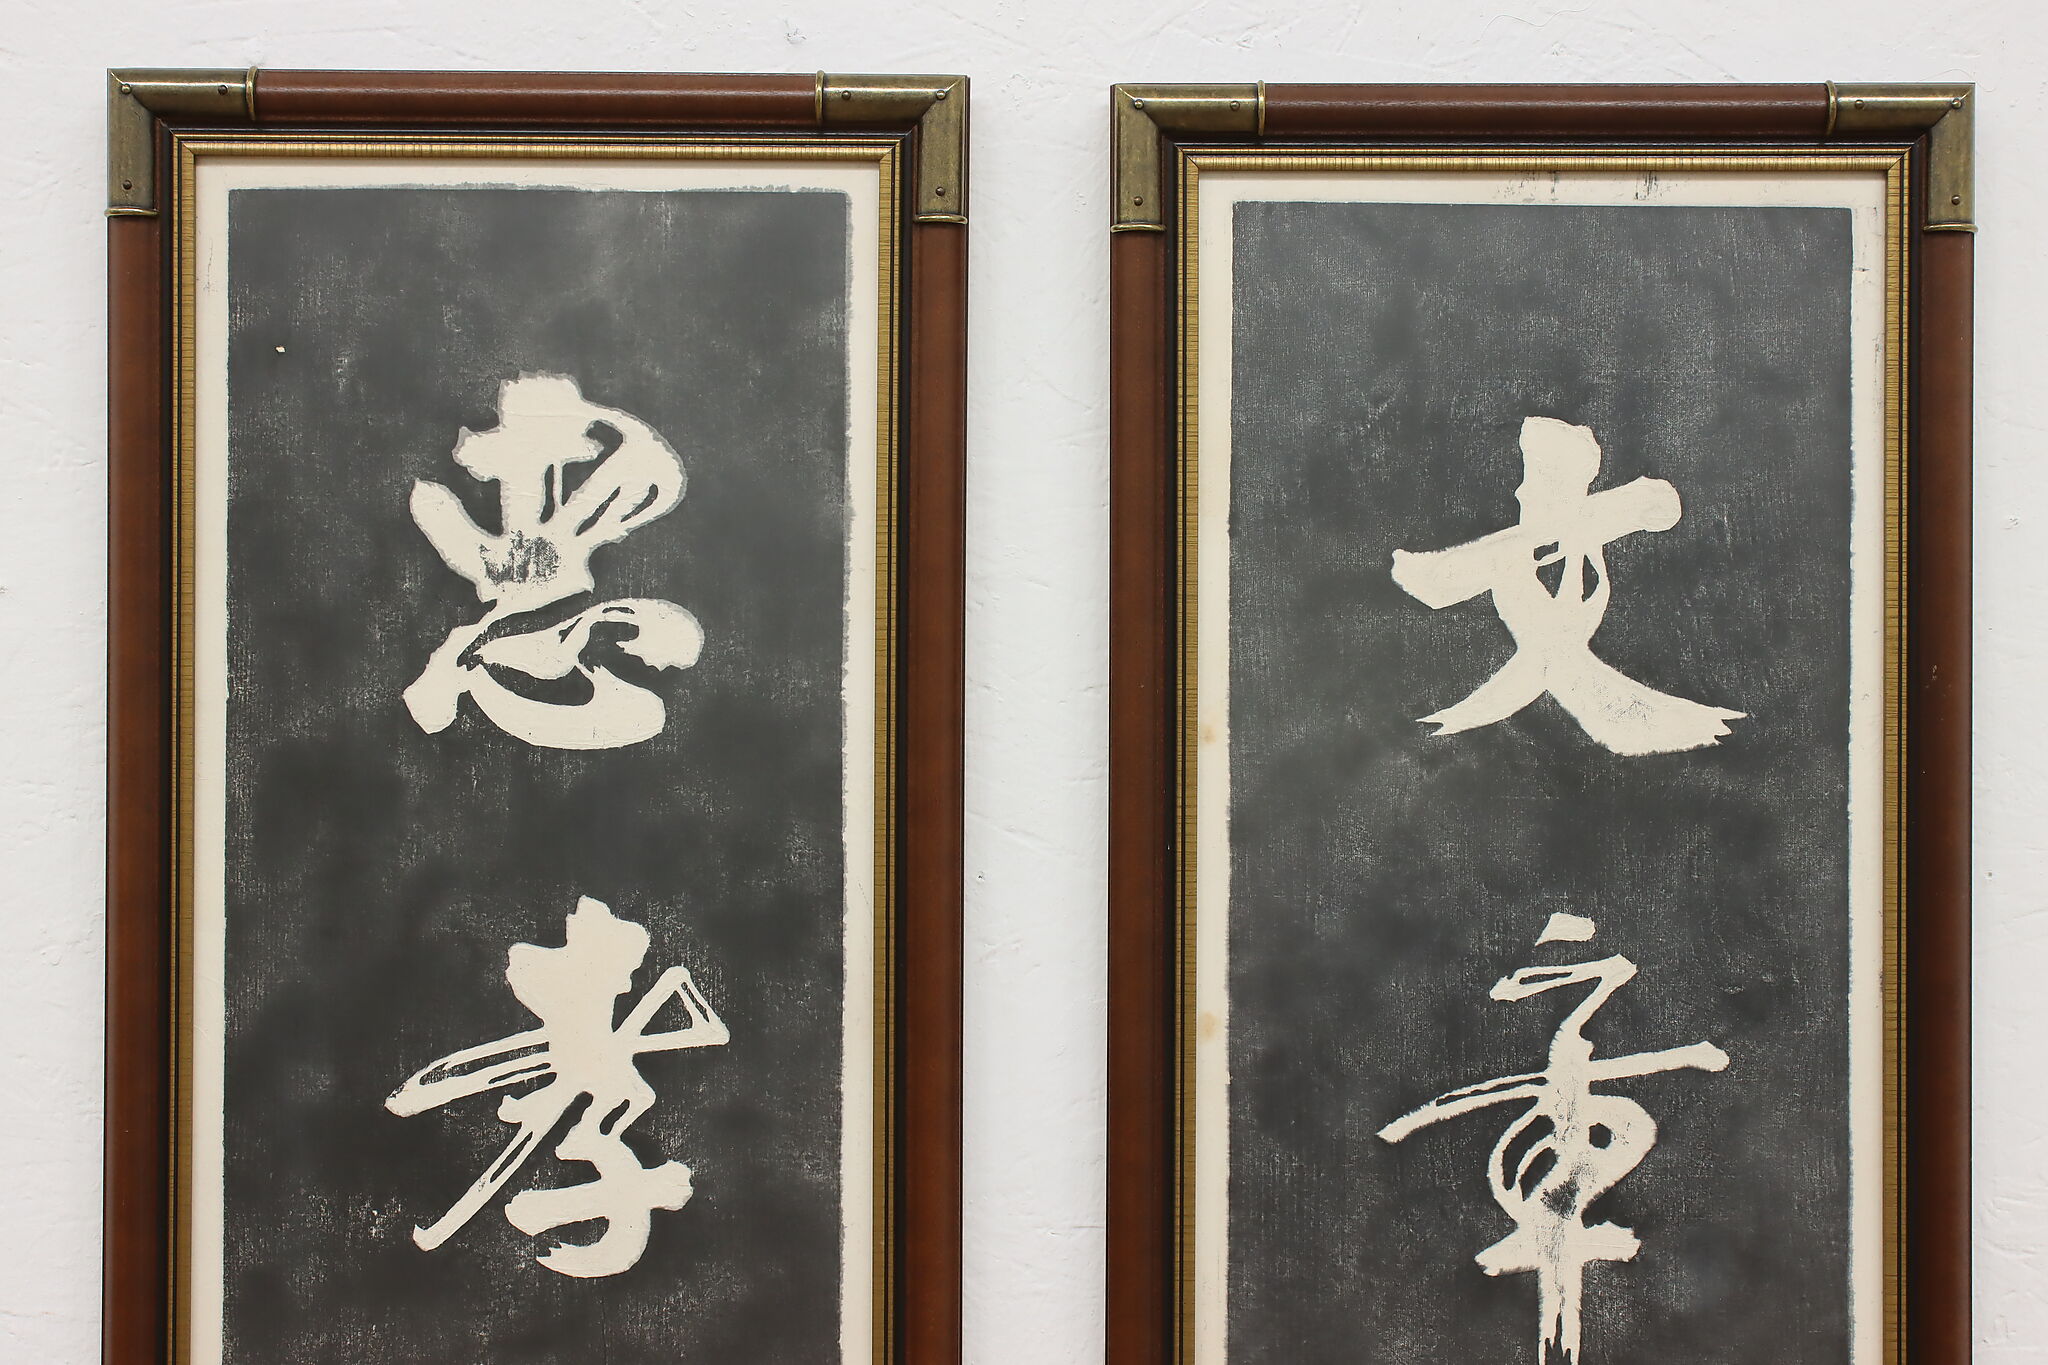 文章
忠孝